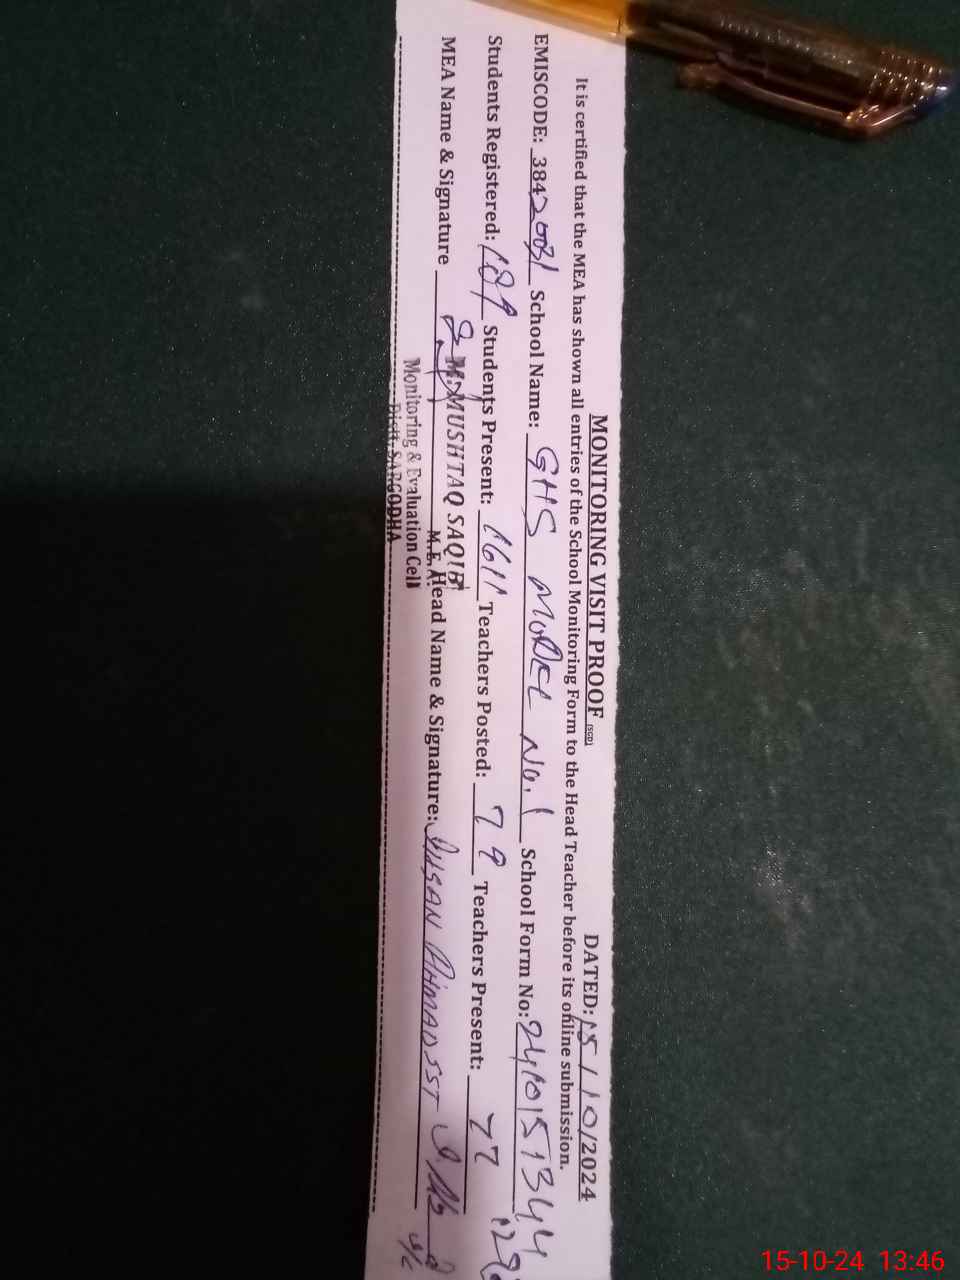 MONITORING VISIT PROOF (SGD) DATED: 15/10/2024
It is certified that the MEA has shown all entries of the School Monitoring Form to the Head Teacher before its online submission.
EMISCODE: 38420031 School Name: GHS MODEL No.1 School Form No: 2410151344
Students Registered: Students Present: 1611 Teachers Posted: 79 Teachers Present: 77
MEA Name & Signature M. MUSHTAQ SAQIB Head Name & Signature: AHMAD SST
M.E.A.
Monitoring & Evaluation Cell
Distt. SARGODHA
15-10-24 13:46